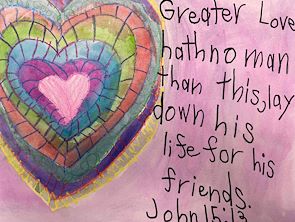 Greater Love
hath no man
than this, lay
down his
life for his
friends.
John 15:13